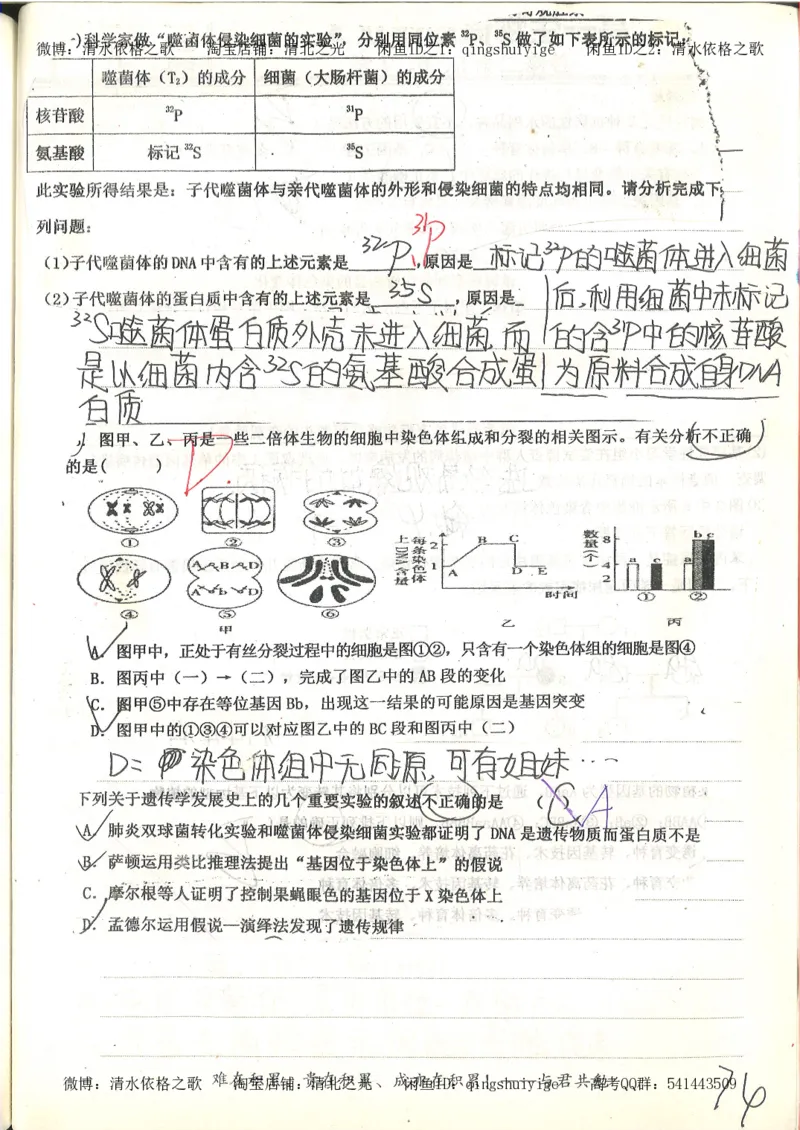 )科学家做“噬菌体侵染细菌的实验”，分别用同位素 ³²P、³⁵S 做了如下表所示的标记：
微博：清水依格之歌 淘宝店铺：清北之光 闲鱼ID之1：qingshuiyige 闲鱼ID之2：清水依格之歌
噬菌体（T₂）的成分 细菌（大肠杆菌）的成分
核苷酸 ³²P ³¹P
氨基酸 标记³²S ³⁵S
此实验所得结果是：子代噬菌体与亲代噬菌体的外形和侵染细菌的特点均相同。请分析完成下
列问题：
³¹P
(1)子代噬菌体的 DNA 中含有的上述元素是 ³²P ,原因是 标记³²P的噬菌体进入细菌
(2)子代噬菌体的蛋白质中含有的上述元素是 35S ，原因是 后，利用细菌中未标记
³²S噬菌体蛋白质外壳未进入细菌，而 的含³¹P中的核苷酸
是以细菌内含³²S的氨基酸合成蛋 为原料合成自身DNA
白质
图甲、乙、丙是一些二倍体生物的细胞中染色体组成和分裂的相关图示。有关分析不正确
的是( ) D.
① ② ③
④ ⑤ ⑥
A B D
A b D
甲
每条染色体上DNA含量
2 1 A B C D E 时间
乙
数量(个)
8 4 2 a c a b c ① ②
丙
A. 图甲中，正处于有丝分裂过程中的细胞是图①②，只含有一个染色体组的细胞是图④
B. 图丙中（一）→（二），完成了图乙中的 AB 段的变化
C. 图甲⑤中存在等位基因 Bb，出现这一结果的可能原因是基因突变
D. 图甲中的①③④可以对应图乙中的 BC 段和图丙中（二）
D= 染色体组中无同源，可有姐妹…
下列关于遗传学发展史上的几个重要实验的叙述不正确的是 （ ） A
A. 肺炎双球菌转化实验和噬菌体侵染细菌实验都证明了 DNA 是遗传物质而蛋白质不是
B. 萨顿运用类比推理法提出“基因位于染色体上”的假说
C. 摩尔根等人证明了控制果蝇眼色的基因位于 X 染色体上
D. 孟德尔运用假说—演绎法发现了遗传规律
微博：清水依格之歌 淘宝店铺：清北之光 闲鱼ID：qingshuiyige 高考QQ群：541443509
难在积累、贵在积累、成亦在积累！ 与君共勉